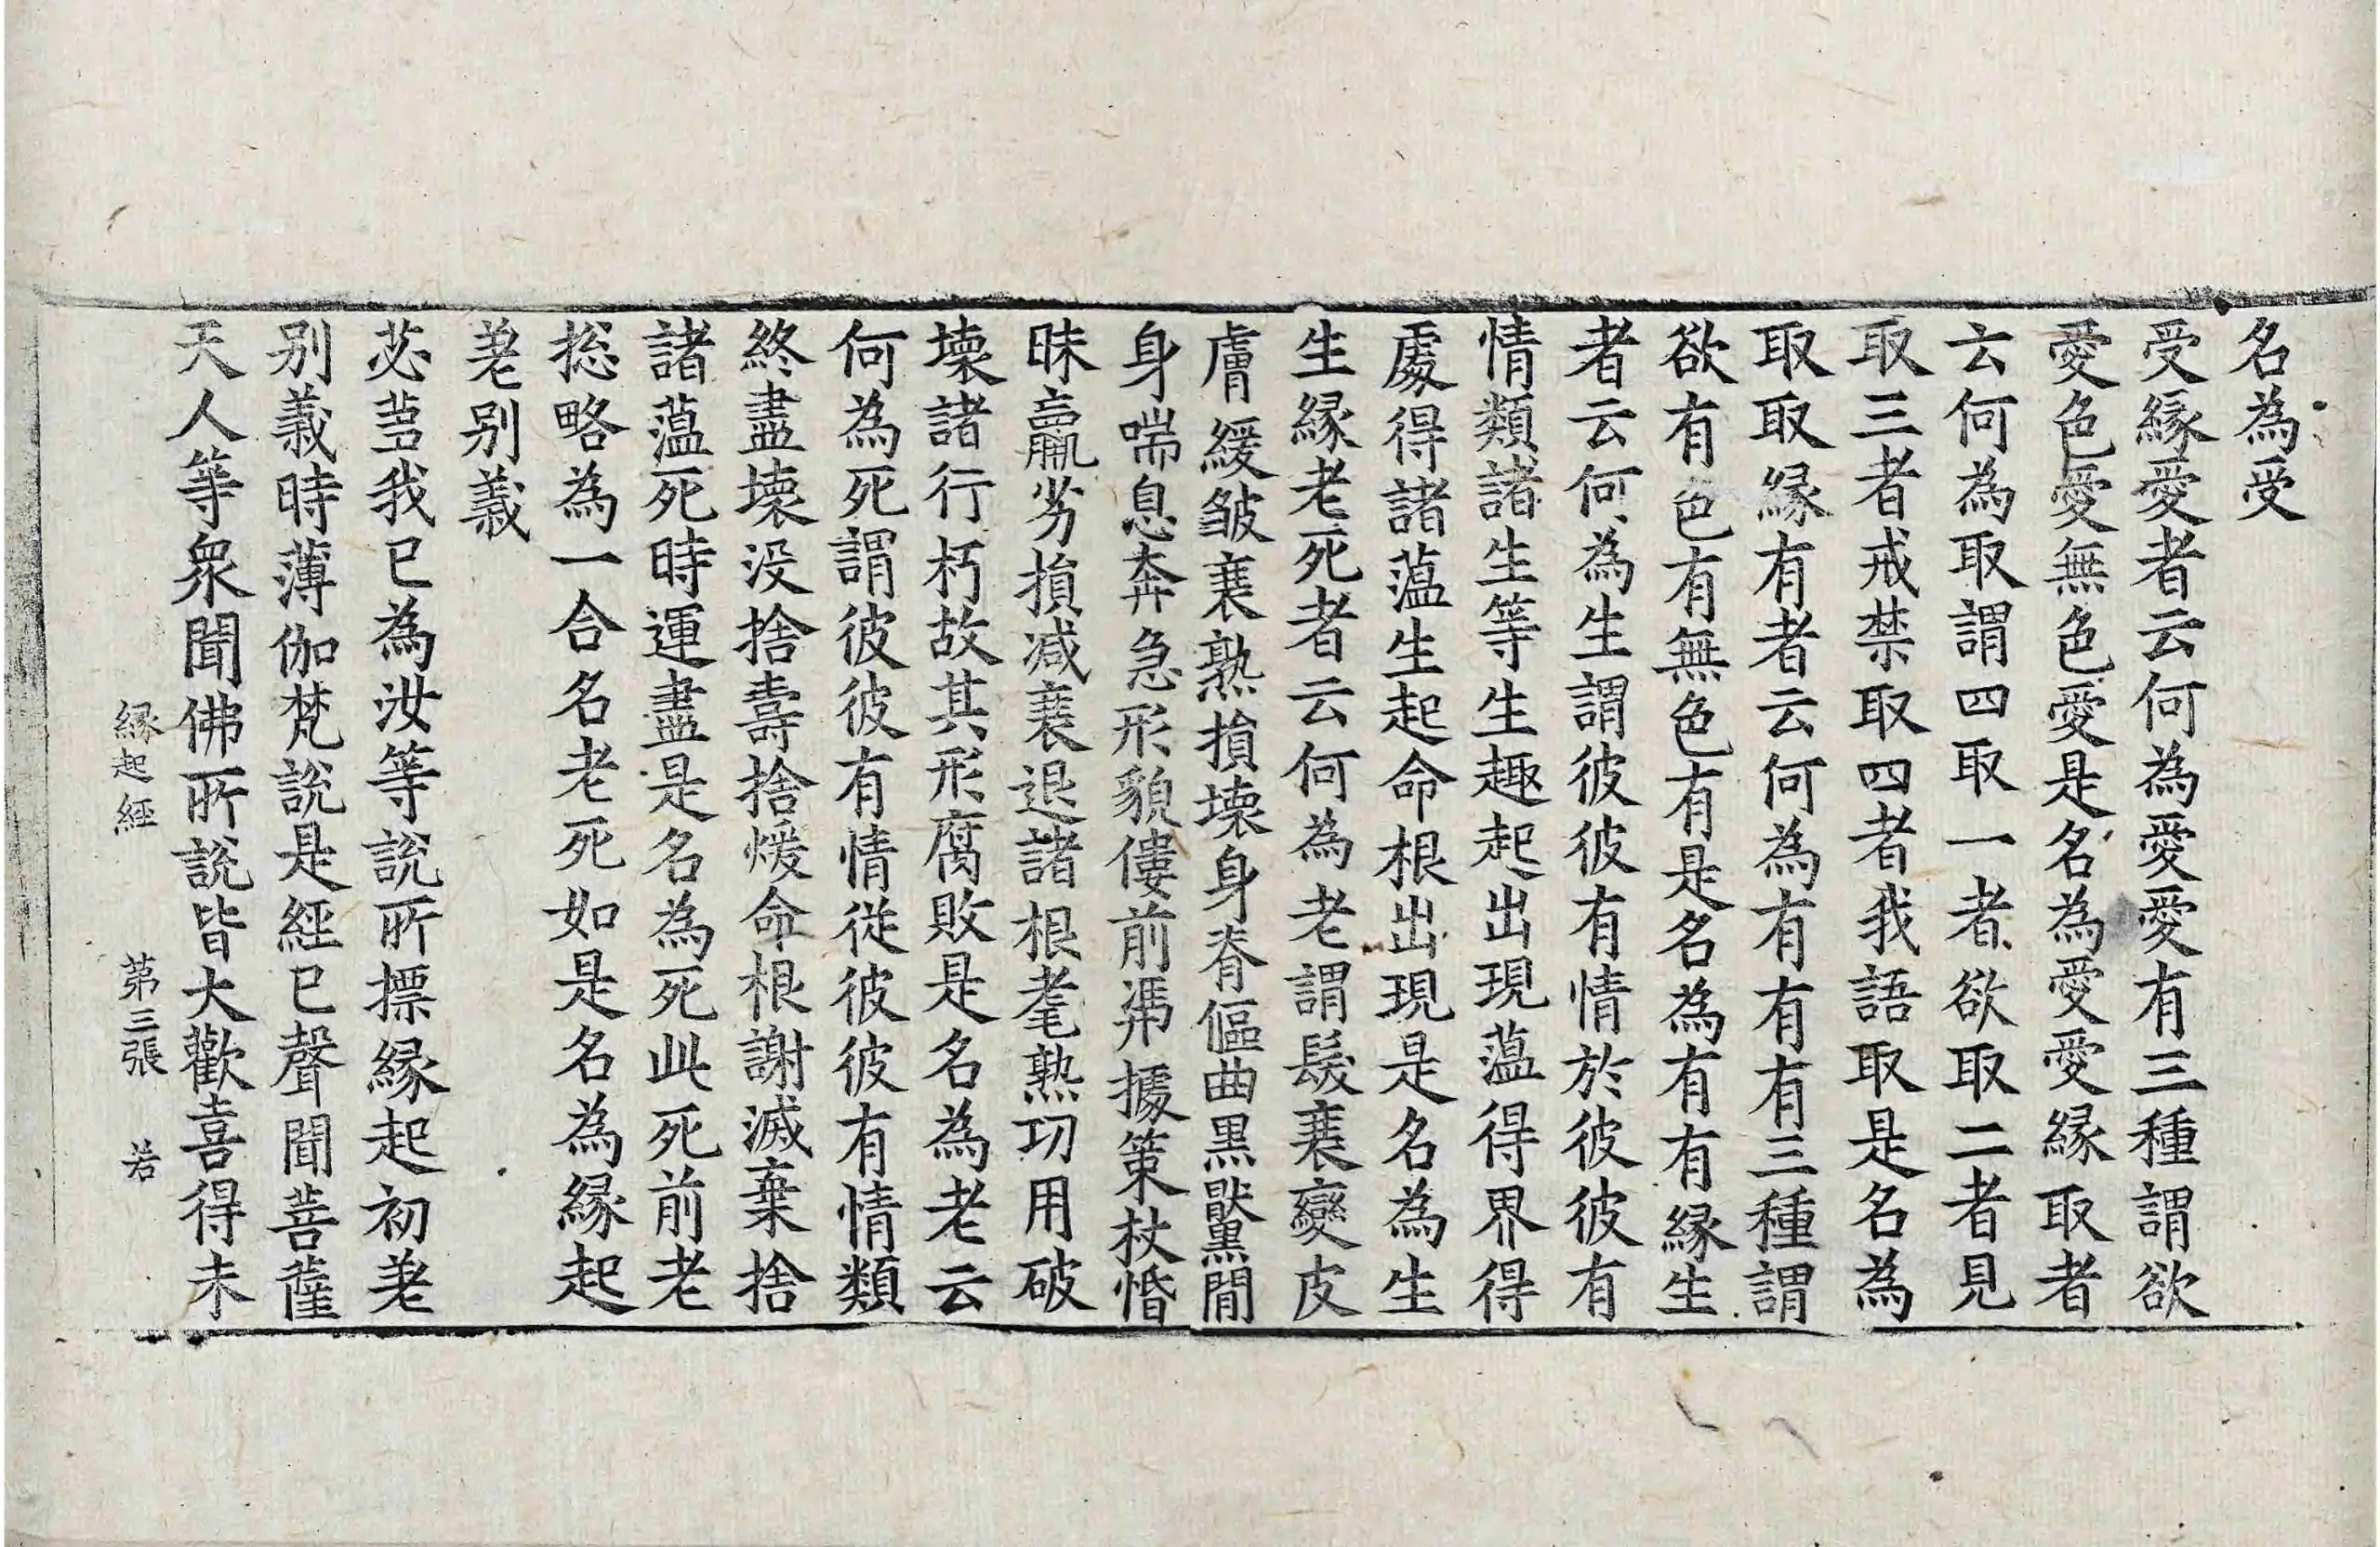 名為受
受縁愛者云何為愛愛有三種謂欲
愛色愛無色愛是名為愛愛縁取者
云何為取謂四取一者欲取二者見
取三者戒禁取四者我語取是名為
取取縁有者云何為有有有三種謂
欲有色有無色有是名為有有縁生
者云何為生謂彼彼有情於彼彼有
情類諸生等生趣起出現蘊得界得
處得諸蘊生起命根出現是名為生
生縁老死者云何為老謂髮衰變皮
膚緩皺衰熟損壞身脊傴曲黒黶閒
身喘息奔急形貌僂前馮據策杖惛
昧羸劣損減衰退諸根耄熟功用破
壞諸行朽故其形腐敗是名為老云
何為死謂彼彼有情從彼彼有情類
終盡壞没捨壽捨煖命根謝滅棄捨
諸蘊死時運盡是名為死此死前老
捴略為一合名老死如是名為縁起
差别義
苾芻我已為汝等説所摽縁起初差
别義時薄伽梵説是經已聲聞菩薩
天人等衆聞佛所説皆大歡喜得未
縁起經　第三張　若